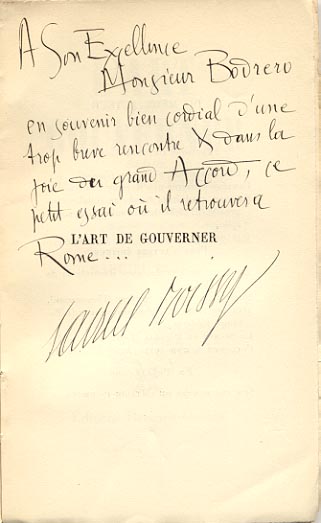 A Son Excellence
Monsieur Bodrero
en souvenir bien cordial d'une
trop brève rencontre X dans la
joie du grand Accord, ce
petit essai où il retrouvera
L'ART DE GOUVERNER
Rome...